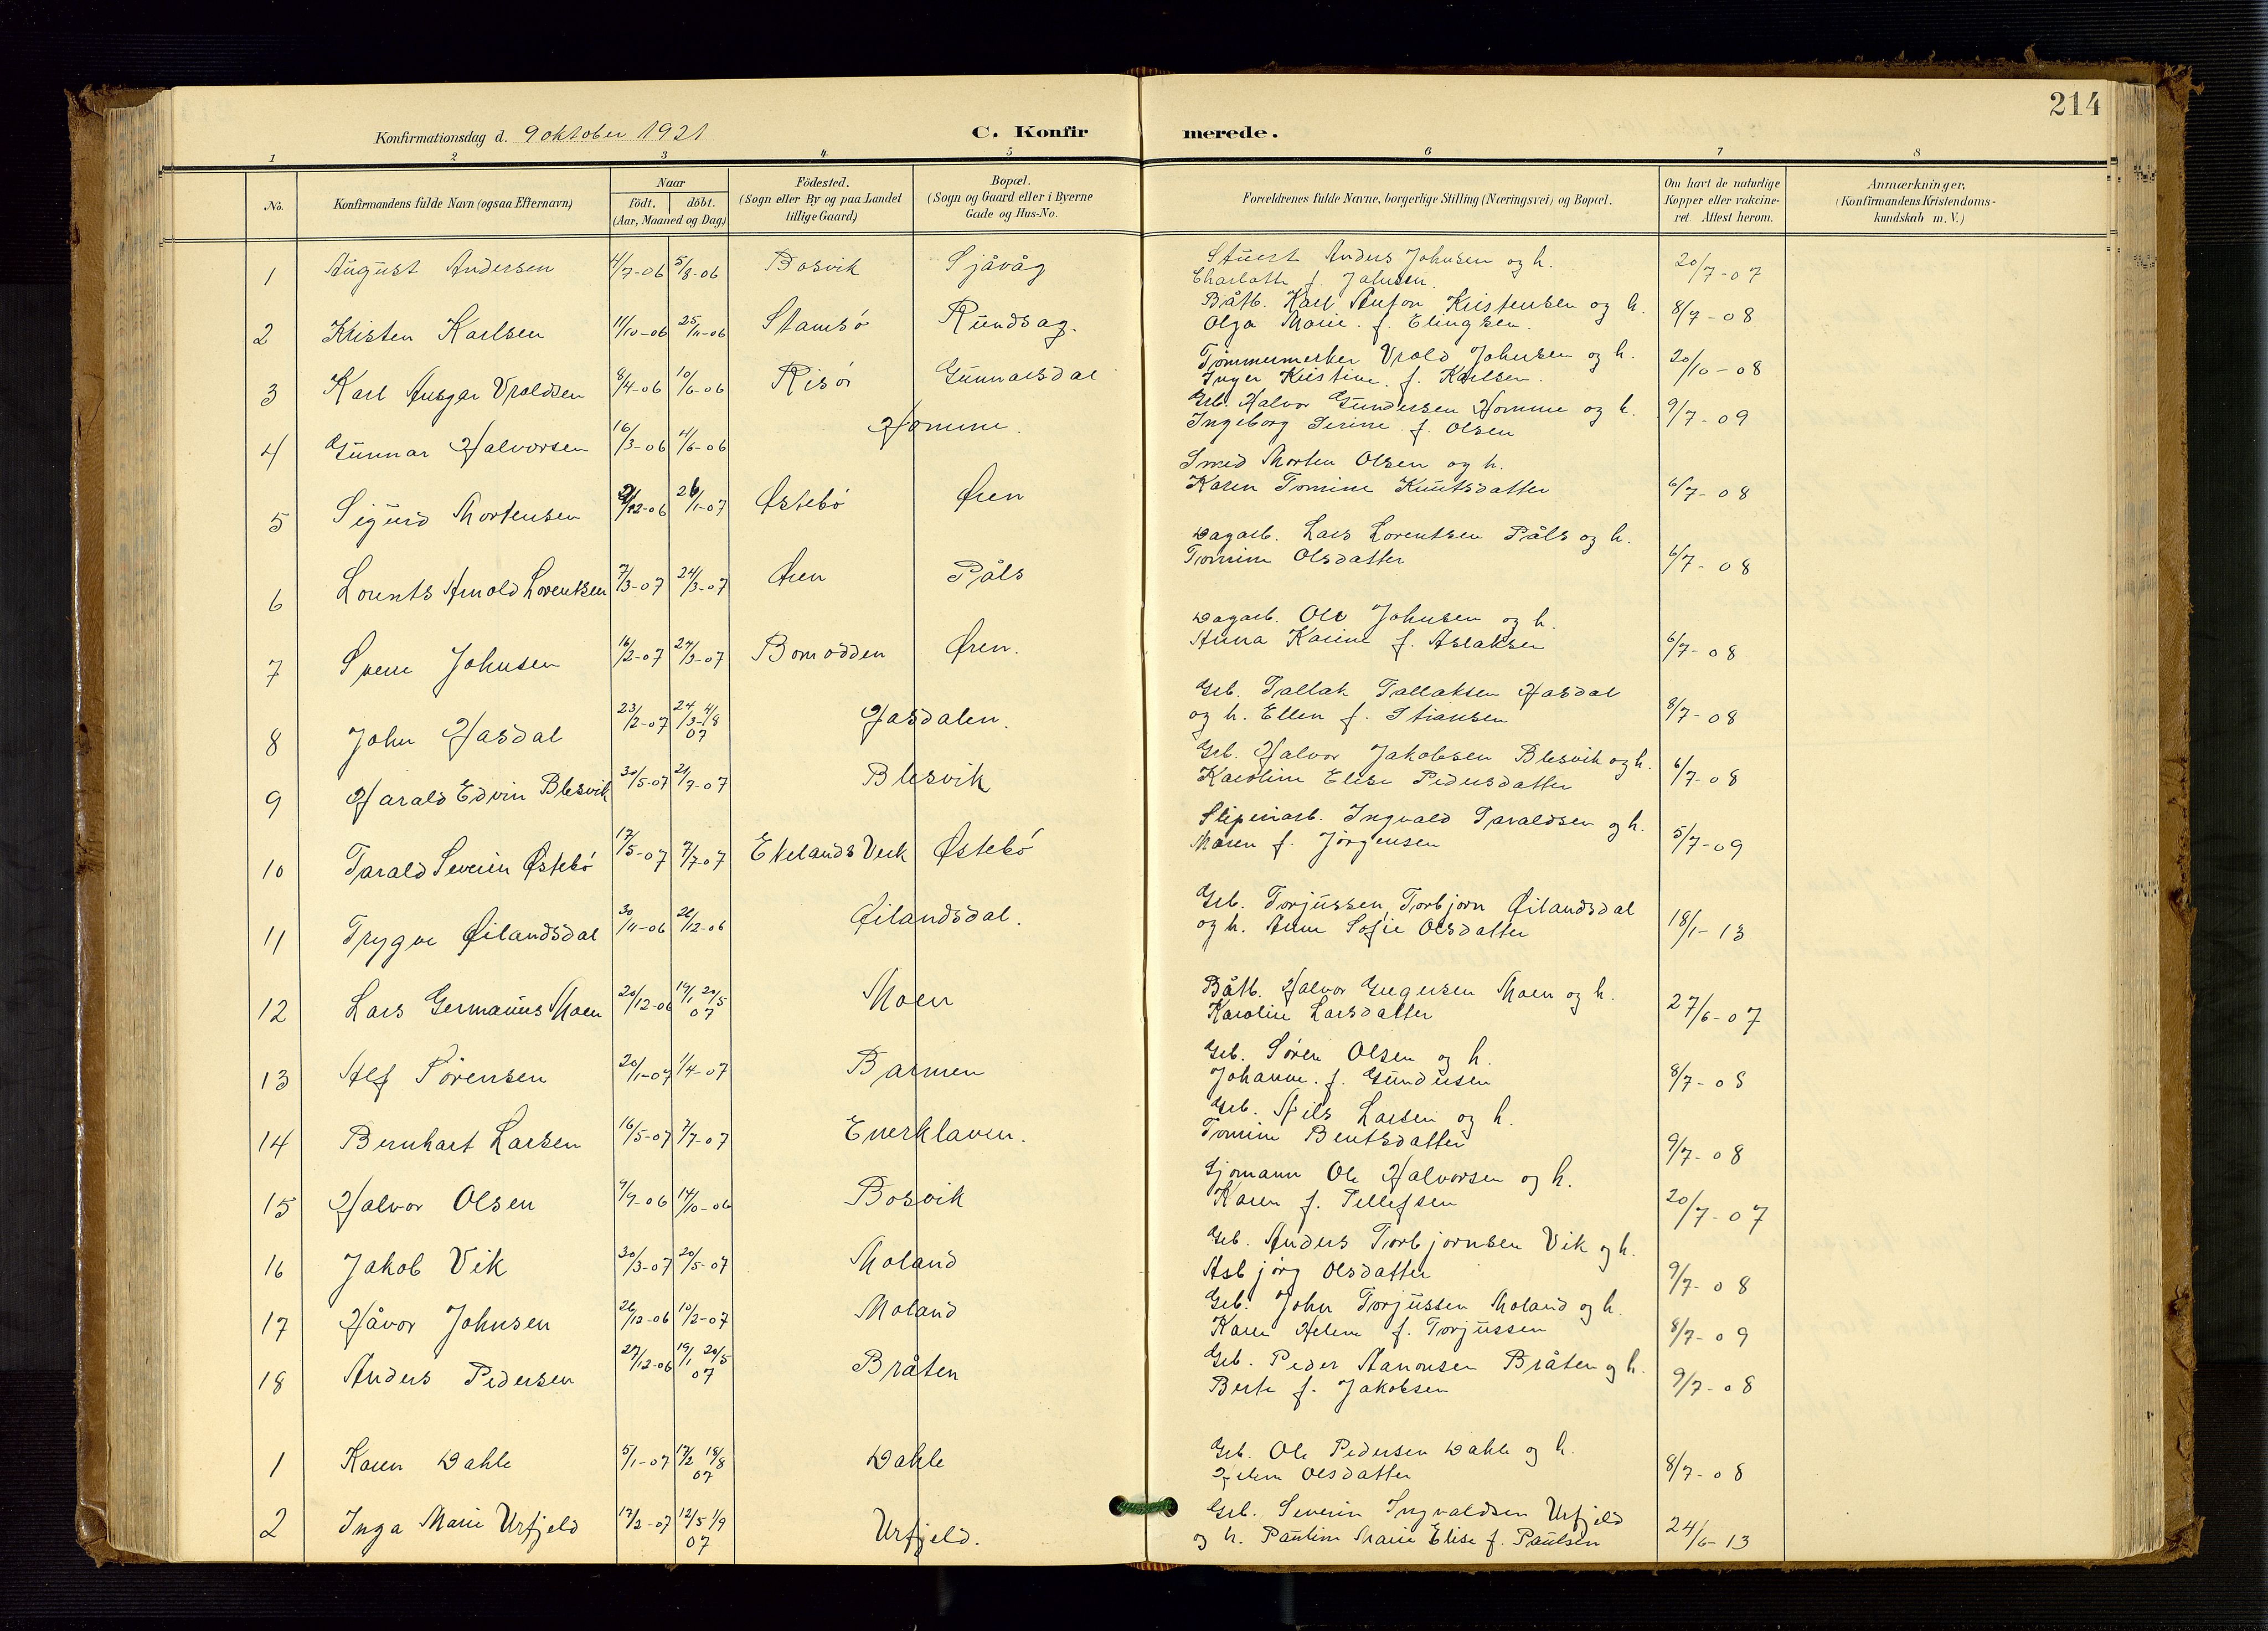 214
Konfirmationsdag d. 9 oktober 1921 C. Konfirmerede.
1 2 3 4 5 6 7 8
No. Konfirmandens fulde Navn (ogsaa Efternavn) Naar födt. döbt. (Aar, Maaned og Dag) Födested. (Sogn eller By og paa Landet tillige Gaard) Bopæl. (Sogn og Gaard eller i Byerne Gade og Hus-No. Forældrenes fulde Navne, borgerlige Stilling (Næringsvei) og Bopæl. Om havt de naturlige Kopper eller vakcineret. Attest herom. Anmærkninger, (Konfirmandens Kristendomskundskab m. V.)
1 August Andersen 4/7-06 5/8-06 Bosvik Sjåvåg Anders Johnsen og h.
Charlotte f. Johnsen. 20/7-07
2 Kristen Karlsen 11/10-06 25/11-06 Stamsö Rundsag. Båtb. Karl Anton Kristensen og h.
Olga Marie. f. Elingsen. 8/7-08
3 Karl Ansgar Vraldsen 8/4-06 10/6-06 Risör Gunnarsdal Tømmermerker Vrald Johnsen og h.
Inger Kristine. f. Karlsen. 20/10-08
4 Gunnar Halvorsen 16/3-06 4/6-06 Homme. Grb. Halvor Gundersen Homme og h.
Ingeborg Serine f. Olsen 9/7-09
5 Sigurd Mortensen /12-06 26/1-07 Östebö Øren Smed Morten Olsen og h.
Karen Tomine Knutsdatter 6/7-08
6 Lorents Arnold Lorentsen 7/3-07 24/3-07 Øren Påls Dagarb. Lars Lorentsen Påls og h.
Tomine Olsdatter 6/7-08
7 Svenn Johnsen 16/2-07 24/3-07 Bomodden Øren. Dagarb. Ole Johnsen og h.
Anna Karine f. Aslaksen 6/7-08
8 John Hasdal 23/2-07 24/3-4/8 07 Hasdalen. Grb. Tallak Tallaksen Hasdal
og h. Ellen f. Stiansen 8/7-08
9 Harald Edvin Blesvik 30/5-07 21/7-07 Blesvik Grb. Halvor Jakobsen Blesvik og h.
Karoline Elise Pedersdatter 6/7-08
10 Tarald Severin Østebö 17/5-07 7/7-07 Ekelands Verk Østebö Sliperiarb. Ingvald Taraldsen og h.
Maren f. Jörgensen 5/7-09
11 Trygve Øilandsdal 30/11-06 26/12-06 Øilandsdal. Grb. Torjussen, Torbjorn Øilandsdal
og h. Anne Sofie Olsdatter 18/1-13
12 Lars Germanius Moen 20/12-06 19/1 20/5 07 Moen Båtb. Halvor Gregersen Moen og h.
Karoline Larsdatter 27/6-07
13 Alf Sörensen 20/1-07 1/4-07 Barmen Grb. Sören Olsen og h.
Johanne. f. Gundersen 8/7-08
14 Bernhart Larsen 16/5-07 7/7-07 Enerklaven. Grb. Nils Larsen og h.
Tomine Bentsdatter 9/7-08
15 Halvor Olsen 9/9-06 14/10-06 Bosvik Sjomann Ole Halvorsen og h.
Karen f. Tellefsen 20/7-07
16 Jakob Vik 30/3-07 20/5-07 Moland Grb. Anders Torbjornsen Vik og h.
Asbjörg Olsdatter 9/7-08
17 Håvor Johnsen 26/12-06 10/2-07 Moland Grb. John Torjussen Moland og h.
Karen Helene f. Torjussen 8/7-09
18 Anders Pedersen 27/12-06 19/1 20/5 07 Bråten Grb. Peder Aanonsen Bråten og h.
Berte f. Jakobsen 9/7-08
1 Karen Dahle 5/1-07 17/2 18/8 07 Dahle Grb. Ole Pedersen Dahle og h.
Helene Olsdatter 8/7-08
2 Inga Marie Urfjeld 17/2-07 12/5 1/9 07 Urfjeld. Grb. Severin Ingvaldsen Urfjeld
og h. Pauline Marie Elise f. Paulsen 24/6-13